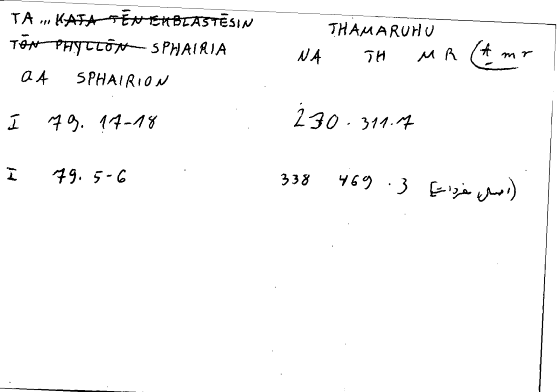 TA ... KATA TĒN EKBLASTĒSIN
TŌN PHYLLŌN SPHAIRIA
QA SPHAIRION
THAMARUHU
NA TH MR (t̲mr
I 79. 17-18 230.311.7
I 79. 5-6 338 469.3